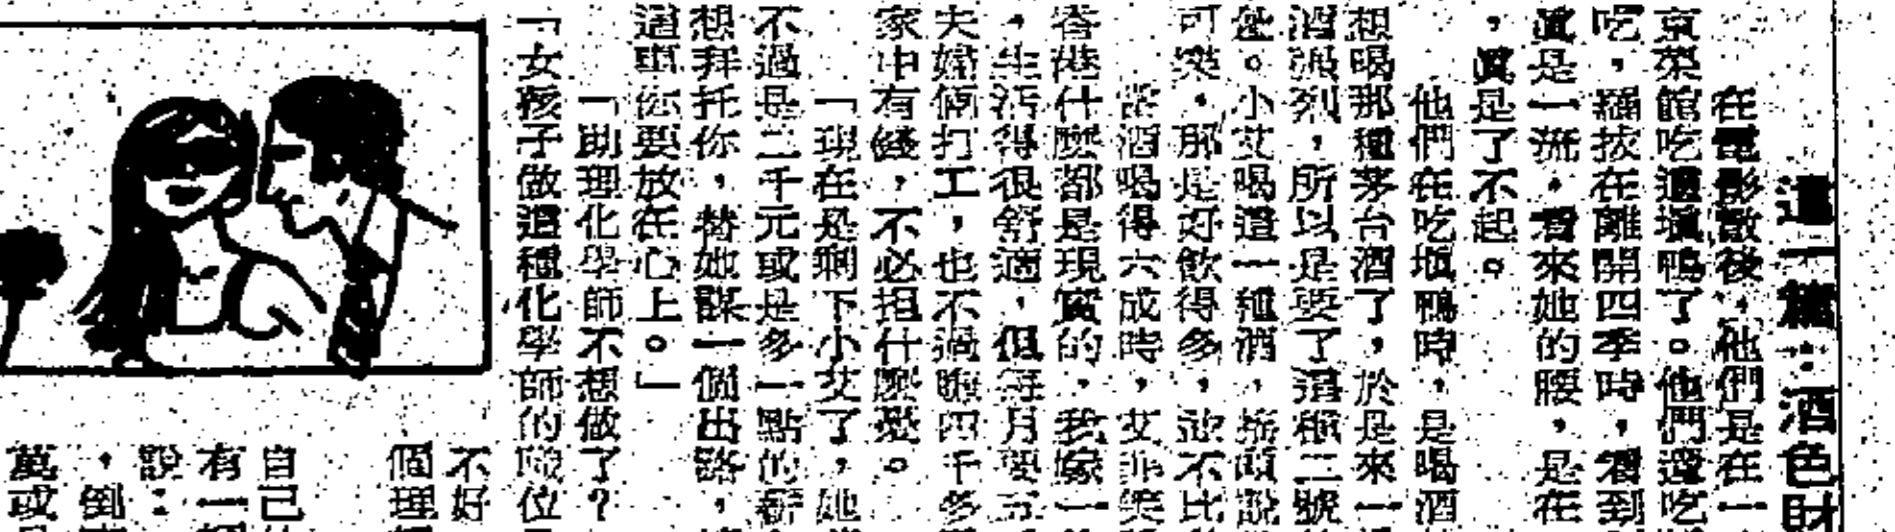 這一篇：酒色財
在電影散後，他們是在一
京菜館吃過塡鴨了。他們還吃
吃，攝拔在離開四季時，看到
眞是一流，看來她的腰，是在
，眞是了不起。
他們在吃塡鴨時，是喝酒
想喝那種茅台酒了，於是來一
酒濃烈，所以是要了這種二號
他。小艾喝這一種酒，搖頭說
可樂，那是好飲得多，並不比
當酒喝得六成時，艾菲笑
香港什麼都是現實的，我嫁一
，生活得很舒適，但每月要五
夫婦倆打工，也不過賺四千多
家中有錢，不必担什麼憂。
「現在是剩下小艾了，她
不過是二千元或是多一點的薪
想拜托你，替她謀一個出路，
這事你要放在心上。」
「助理化學師不想做了？
「女孩子做這種化學師的職位
不好
個理
自己
有一
說：
，倒
萬或